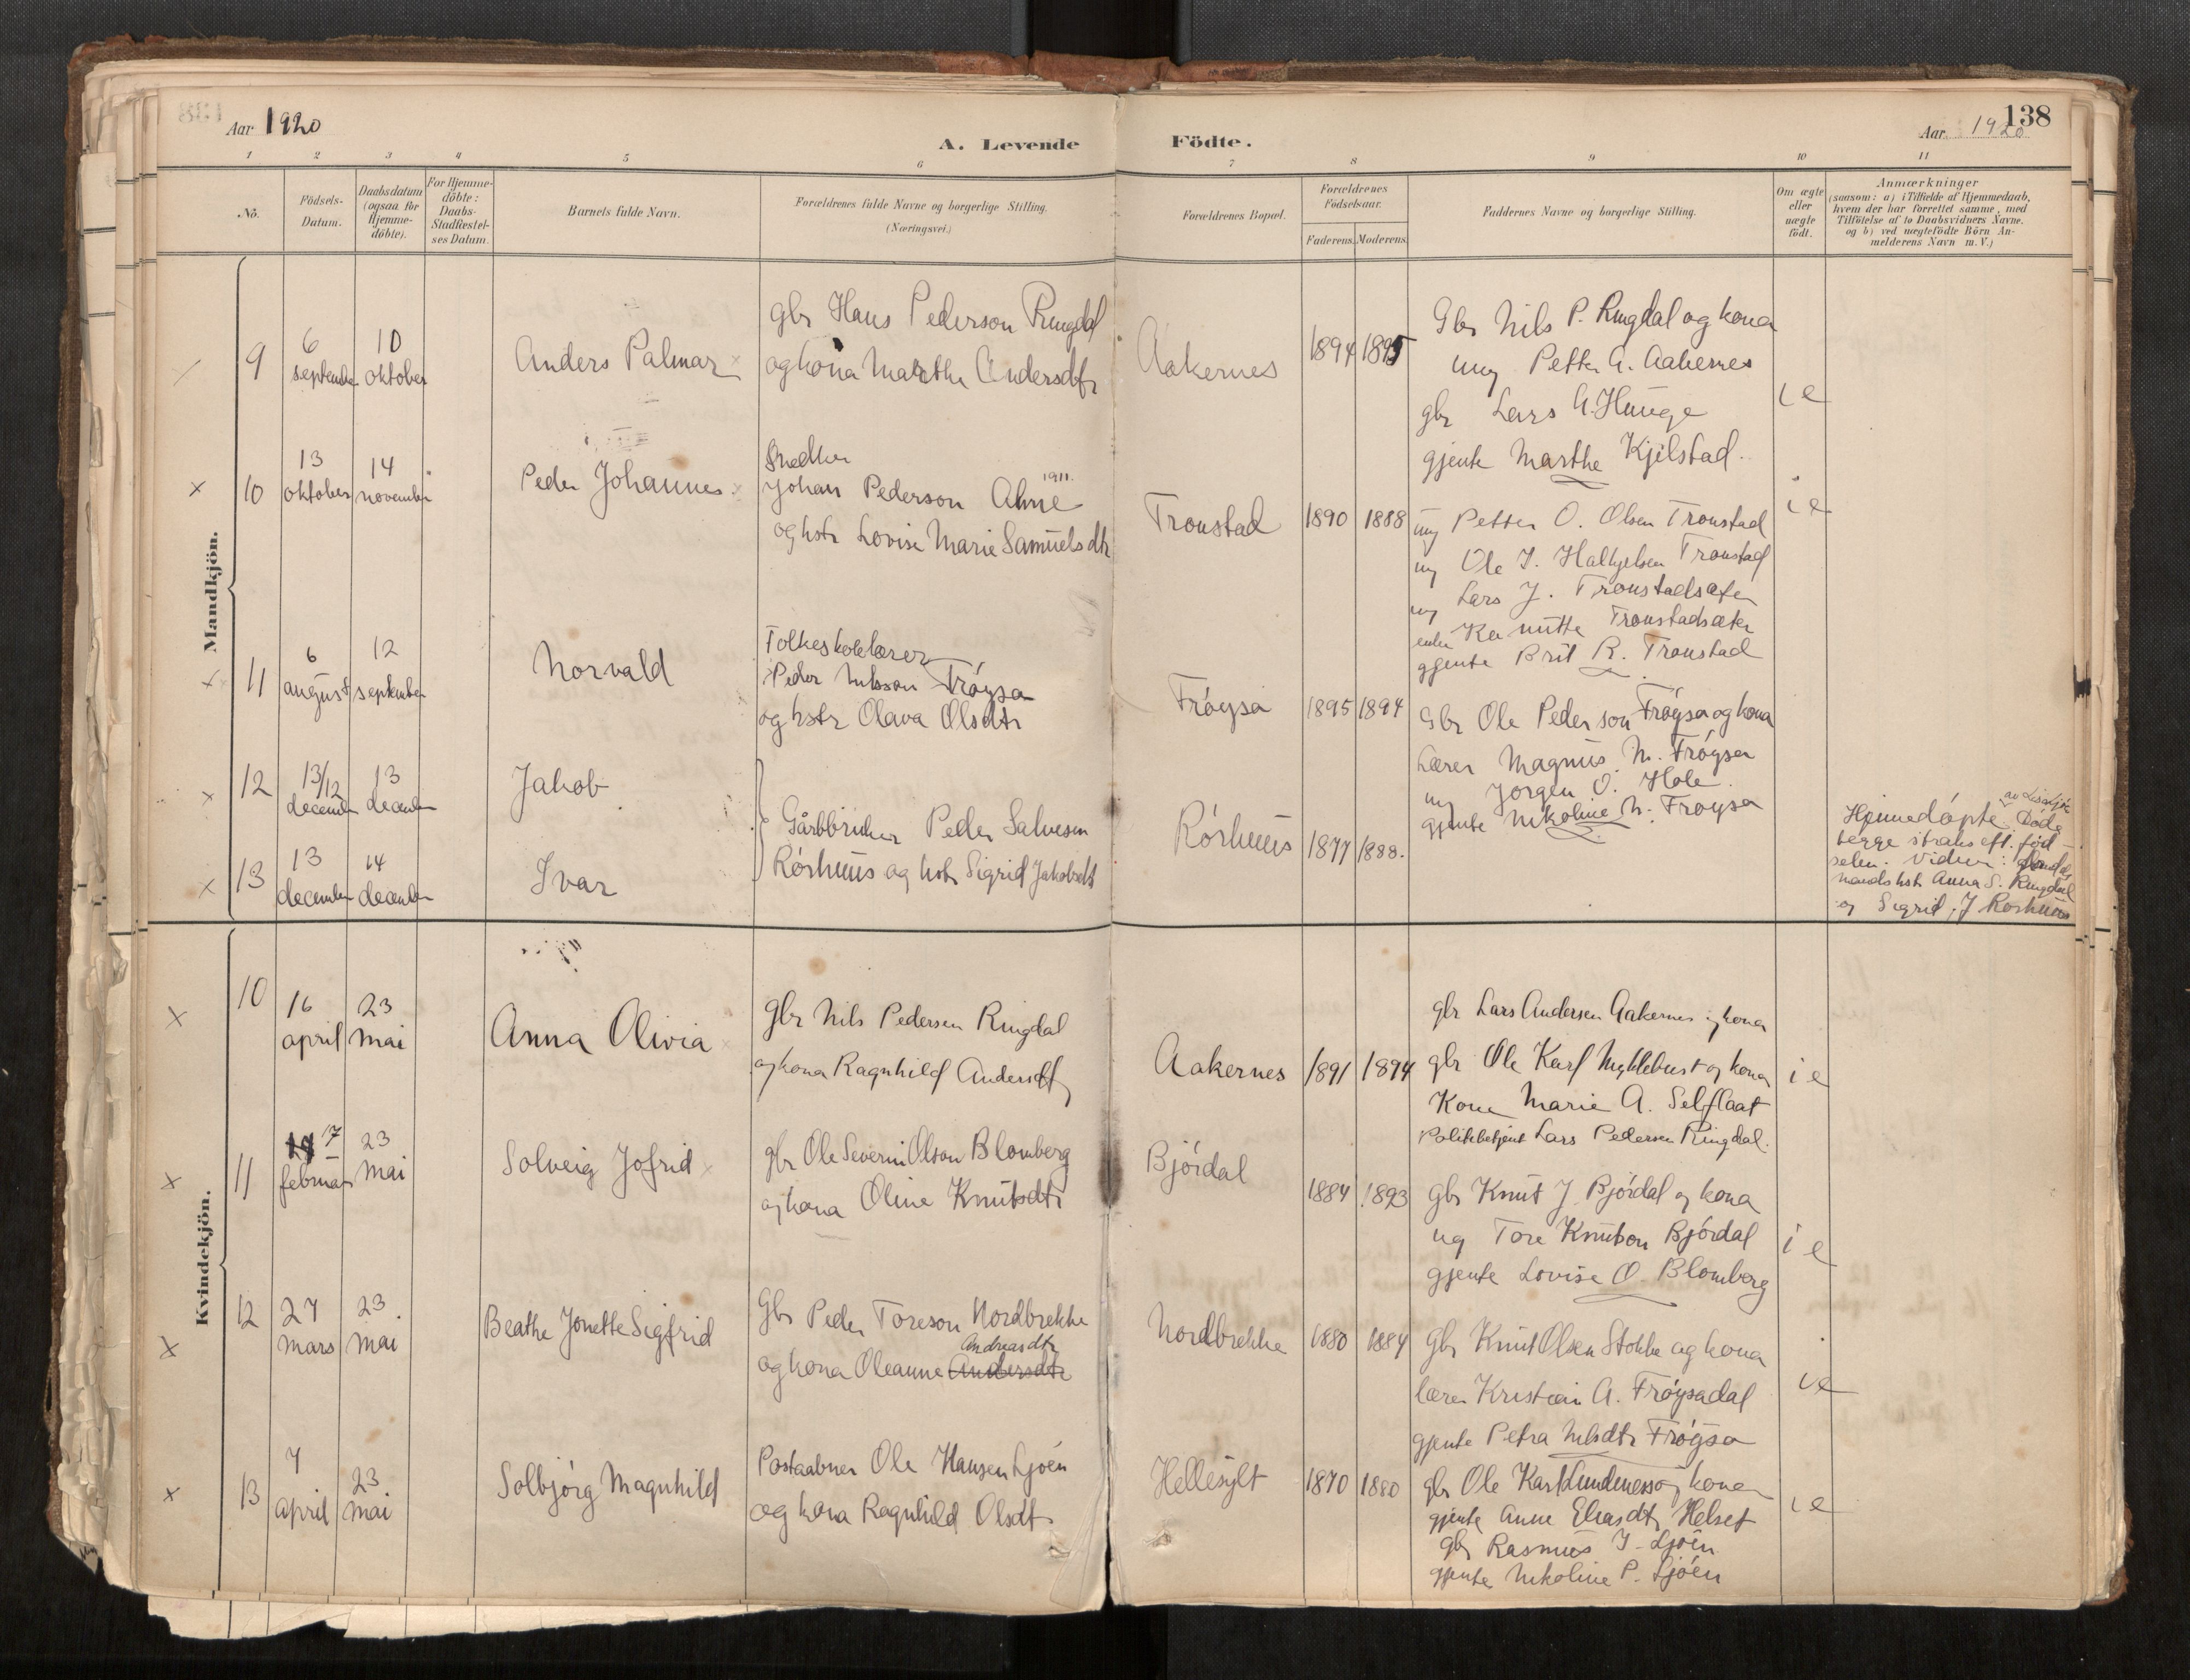 Aar 1920
A. Levende Födte.
138
Aar. 1920
1 2 3 4 5 6 7 8 9 10 11
No.
Födsels-
Datum.
Daabsdatum
(ogsaa for
Hjemme-
döbte).
For Hjemme-
döbte:
Daabs-
Stadfæstel-
ses Datum.
Barnets fulde Navn.
Forældrenes fulde Navne og borgerlige Stilling.
(Næringsvei.)
Forældrenes Bopæl.
Forældrenes
Födselsaar.
Faderens. Moderens.
Faddernes Navne og borgerlige Stilling.
Om ægte
eller
uægte
födt.
Anmærkninger
(saasom: a) i Tilfælde af Hjemmedaab,
hvem der har forrettet samme, med
Tilföielse af to Daabsvidners Navne.
og b) ved uægtefödte Börn An-
melderens Navn m. V.)
Mandkjön.
9
6
september
10
oktober
Anders Palmar
gbr Hans Pederson Ringdal
og kona Marthe Andersdtr
Aakernes
1894 1895
Gbr Nils P. Ringdal og kona
ung Petter A. Aakernes
gbr Lars A. Hauge
gjente Marthe Kjilstad.
i e
10
13
oktober
14
november
Peder Johannes
Snedker
Johan Pederson Alme
1911.
og hstr Lovise Marie Samuelsdtr
Tronstad
1890 1888
ung Petter O. Olsen Tronstad
ug Ole I. Tronstad
ug Lars J. Tronstadsæter
enke Tronstadsæter
gjente Brit R. Tronstad
i e
11
6
august
12
september
Norvald
Folkeskolelærer
Peder Nilsson Fröysa
og hstr Olava Olsdtr
Fröysa
1895 1894
Gbr Ole Pederson Fröysa og kona
Lærer Magnus N. Fröysa
ug Jorgen O. Hole
gjente Nikoline N. Fröysa
12
13/12
december
13
december
Jakob
13
13
december
14
december
Ivar
Gårbbruker Peder Salvesen
Rörhuus og hstr Sigrid Jakobsdt
Rörhuus
1877 1888.
Hjemmedöpte. Döde
begge straks eft. föd-
selen. Vidner:
hst. Anna S. Ringdal
og Sigrid J Rörhuus
Kvindekjön.
10
16
april
23
mai
Anna Olivia
gbr Nils Pedersen Ringdal
og kona Ragnhild Andersdtr
Aakernes
1891 1894
gbr Lars Andersen Aakernes og kona
gbr Ole Karl Myklebust og kona
Kone Marie A. Selflaat
Politibetjent Lars Pedersen Ringdal.
i e
11
17
februar
23
mai
Solveig Jofrid
gbr Ole Severin Olson Blomberg
og kona Oline Knutsdtr
Björdal
1884 1893
gbr Knut J. Björdal og kona
ug Tore Knutson Björdal
gjente Lovise O. Blomberg
i e
12
27
mars
23
mai
Beathe Jonette Sigfrid
Gbr Peder Toreson Nordbrekke
Andreasdtr
og kona Oleanne Andersdtr
Nordbrekke
1880 1884
gbr Knut Olsen Stokke og kona
lærer Kristian A. Fröysadal
gjente Petra Nilsdtr Fröysa
i e
13
7
april
23
mai
Solbjörg Magnhild
Postaabner Ole Hansen Ljöen
og kona Ragnhild Olsdtr
Hellesylt
1870 1880
gbr Ole Karl Lundenes og kona
gjente Anne Eliasdtr Helset
gbr Rasmus I. Ljöen
gjente Nikoline P. Ljöen
i e